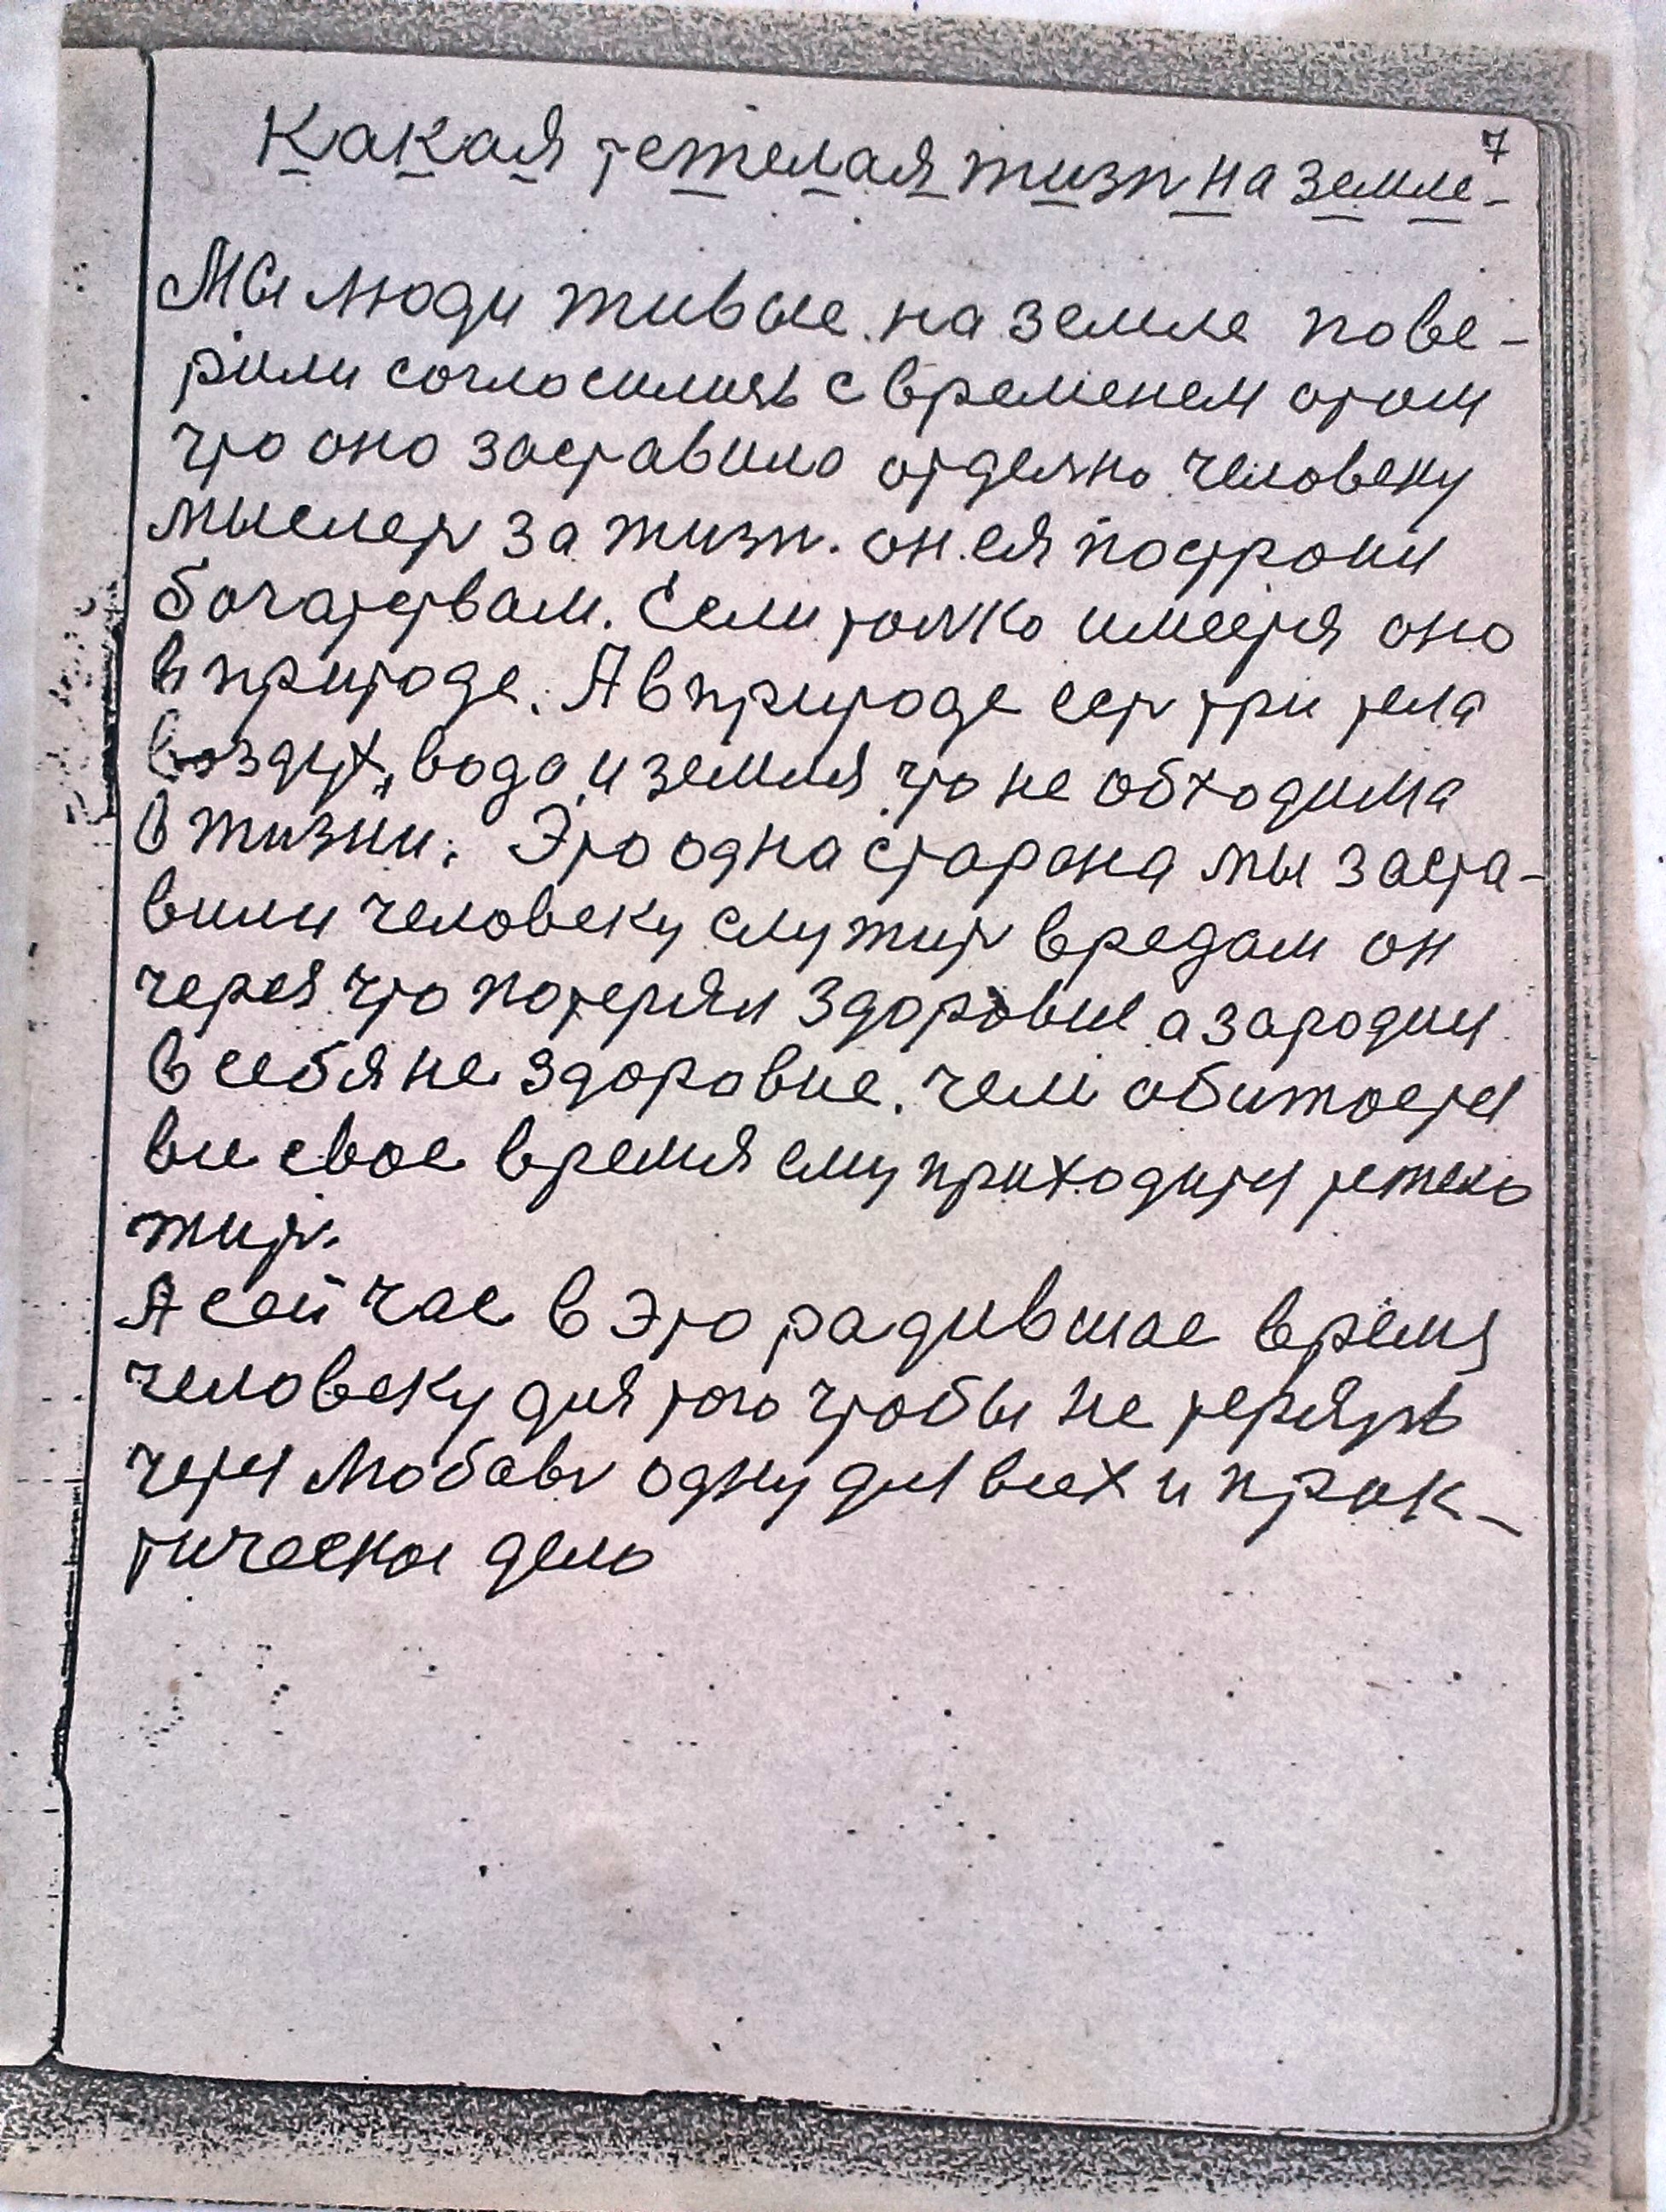 7
Какая тежелая жизн на земле-
Мы люди живые на земле пове-
рили согласилиль с временем отом
что оно заставило отделно человеку
мыслет за жизн. он ея построил
богатствам. Если толко имеетя оно
в природе. А в природе сет три тела
воздух, вода и земля что не обходима
в жизни. Это одна старана мы заста-
вили человеку служит вредам он
через что потерял здоровие а зародил
в себя не здоровие. чем обижается
ви свое время ему приходится тежело
жит.
А сей час в это радившае время
человеку для того чтобы не терять
через любовь одну для всех и прак-
тическое дело